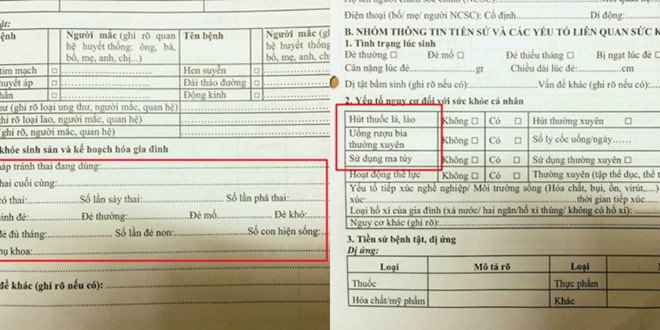 ật:
ệnh Người mắc (ghi rõ quan hệ huyết thống: ông, bà, bố, mẹ, anh, chị...) Tên bệnh Người mắc hệ huyết bố, mẹ, a
tim mạch □ Hen suyễn □
huyết áp □ Đái tháo đường □
thần □ Động kinh □
thư (ghi rõ loại ung thư, người mắc, quan hệ)
(ghi rõ loại lao, người mắc, quan hệ)
(ghi rõ, người mắc, quan hệ)
khỏe sinh sản và kế hoạch hóa gia đình
háp tránh thai đang dùng:
thai cuối cùng:
có thai: Số lần sảy thai: Số lần phá thai:
sinh đẻ: Đẻ thường: Đẻ mổ: Đẻ khó:
đẻ đủ tháng: Số lần đẻ non: Số con hiện sống:
hụ khoa:
đề khác (ghi rõ nếu có):
Điện thoại (bố/ mẹ/ người NCSC): Cố định Di động:
B. NHÓM THÔNG TIN TIỀN SỬ VÀ CÁC YẾU TỐ LIÊN QUAN SỨC K
1. Tình trạng lúc sinh
Đẻ thường □ Đẻ mổ □ Đẻ thiếu tháng □ Bị ngạt lúc đẻ □
Cân nặng lúc đẻ:gr Chiều dài lúc đẻ:cm
Dị tật bẩm sinh (ghi rõ nếu có): Vấn đề khác (ghi rõ nếu có):
2. Yếu tố nguy cơ đối với sức khỏe cá nhân
Hút thuốc lá, lào Không □ Có □ Hút thường xuyên □
Uống rượu bia thường xuyên Không □ Có □ Số ly cốc uống/ngày
Sử dụng ma túy Không □ Có □ Sử dụng thường xuyên □
Hoạt động thể lực Không □ Có □ Thường xuyên (tập thể dục, thể t
Yếu tố tiếp xúc nghề nghiệp/ Môi trường sống (Hóa chất, bụi, ồn, virút,....)
xúc: thời gian tiếp xúc
Loại hố xí của gia đình (xả nước/ hai ngăn/hố xí thùng/ không có hố xí):
Nguy cơ khác (ghi rõ):
3. Tiền sử bệnh tật, dị ứng
Dị ứng:
Loại Mô tả rõ Loại
Thuốc Thực phẩm
Hóa chất/mỹ phẩm Khác